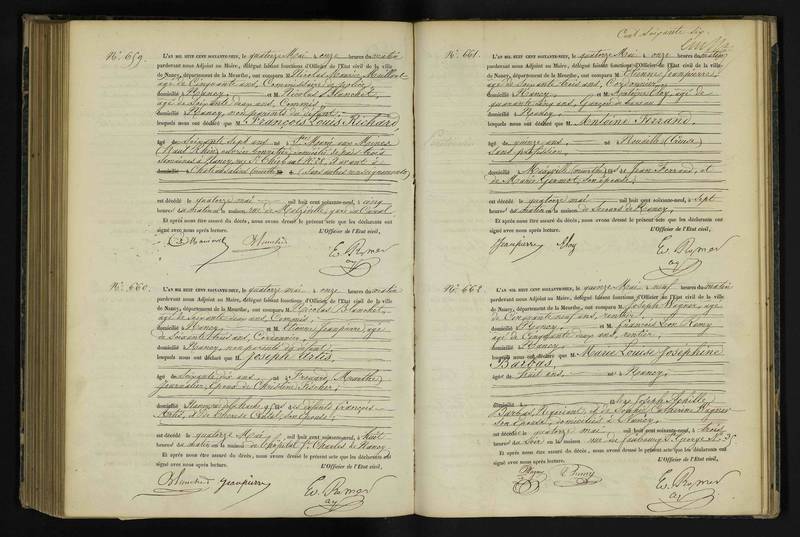 N° 659.
L'AN MIL HUIT CENT SOIXANTE-NEUF, le quatorze Mai à onze heures du matin
pardevant nous Adjoint au Maire, délégué faisant fonctions d'Officier de l'Etat civil de la ville
de Nancy, département de la Meurthe, ont comparu M. Nicolas
âgé de Cinquante ans, Commissaire de police
domicilié à Nancy, et M. Nicolas Blanchet,
âgé de Soixante ans, Commis,
domicilié à Nancy, non parents du défunt,
lesquels nous ont déclaré que M. François Louis Richard,
âgé de Soixante sept ans né à Ste Marie aux Mines
(Haut Rhin)
à Nancy rue St N° 28, et avant à
domicilié à (Sans autres renseignements)
est décédé le quatorze mai mil huit cent soixante-neuf, à cinq
heures du matin en la maison rue de Malzéville, gare du Canal.
Et après nous être assuré du décès, nous avons dressé le présent acte que les déclarants ont
signé avec nous après lecture. L'Officier de l'Etat civil,
Blanchet
N° 660.
L'AN MIL HUIT CENT SOIXANTE-NEUF, le quatorze mai à onze heures du matin
pardevant nous Adjoint au Maire, délégué faisant fonctions d'Officier de l'Etat civil de la ville
de Nancy, département de la Meurthe, ont comparu M. Nicolas Blanchet,
âgé de Soixante ans, Commis,
domicilié à Nancy, et M. Etienne Jeanpierre âgé
de Soixante trois ans, Cordonnier,
domicilié à Nancy, non parents du défunt,
lesquels nous ont déclaré que M. Joseph Artis,
âgé de Soixante dix ans né à Frouard, (Meurthe)
journalier, époux de Christine Fischer,
domicilié à fils des défunts François
Artis, et de Thérèse son épouse,
est décédé le quatorze Mai mil huit cent soixante-neuf, à huit
heures du matin en la maison de l'hôpital St Charles de Nancy.
Et après nous être assuré du décès, nous avons dressé le présent acte que les déclarants ont
signé avec nous après lecture. L'Officier de l'Etat civil,
Blanchet Jeanpierre
Cent Soixante dix
N° 661.
L'AN MIL HUIT CENT SOIXANTE-NEUF, le quatorze Mai à onze heures du matin
pardevant nous Adjoint au Maire, délégué faisant fonctions d'Officier de l'Etat civil de la ville
de Nancy, département de la Meurthe, ont comparu M. Etienne Jeanpierre,
âgé de Soixante trois ans, Cordonnier,
domicilié à Nancy, et M. Eloy, âgé de
quarante cinq ans, Garçon de bureau
domicilié à Nancy,
lesquels nous ont déclaré que M. Antoine Ferrand,
âgé de quinze ans, né à (Creuse)
sans profession,
domicilié à (Meurthe) fils de Jean Ferrand, et
de Marie son épouse,
est décédé le quatorze mai mil huit cent soixante-neuf, à Sept
heures du matin en la maison de Secours de Nancy.
Et après nous être assuré du décès, nous avons dressé le présent acte que les déclarants ont
signé avec nous après lecture. L'Officier de l'Etat civil,
Jeanpierre Eloy
N° 662.
L'AN MIL HUIT CENT SOIXANTE-NEUF, le quinze Mai à neuf heures du matin
pardevant nous Adjoint au Maire, délégué faisant fonctions d'Officier de l'Etat civil de la ville
de Nancy, département de la Meurthe, ont comparu M. Joseph Wagner, âgé
de Cinquante neuf ans, rentier,
domicilié à Nancy, et M. François Léon Remy
âgé de Cinquante deux ans, rentier,
domicilié à Nancy,
lesquels nous ont déclaré que M. Marie Louise Joséphine
Barbas,
âgée de huit ans, née à Nancy,
domicilié à fille de Joseph
Barbas, Négociant, et de Catherine Wagner
son épouse, domiciliés à Nancy,
est décédée le quatorze mai mil huit cent soixante-neuf, à trois
heures du Soir en la maison rue du faubourg St Georges N° 35.
Et après nous être assuré du décès, nous avons dressé le présent acte que les déclarants ont
signé avec nous après lecture. L'Officier de l'Etat civil,